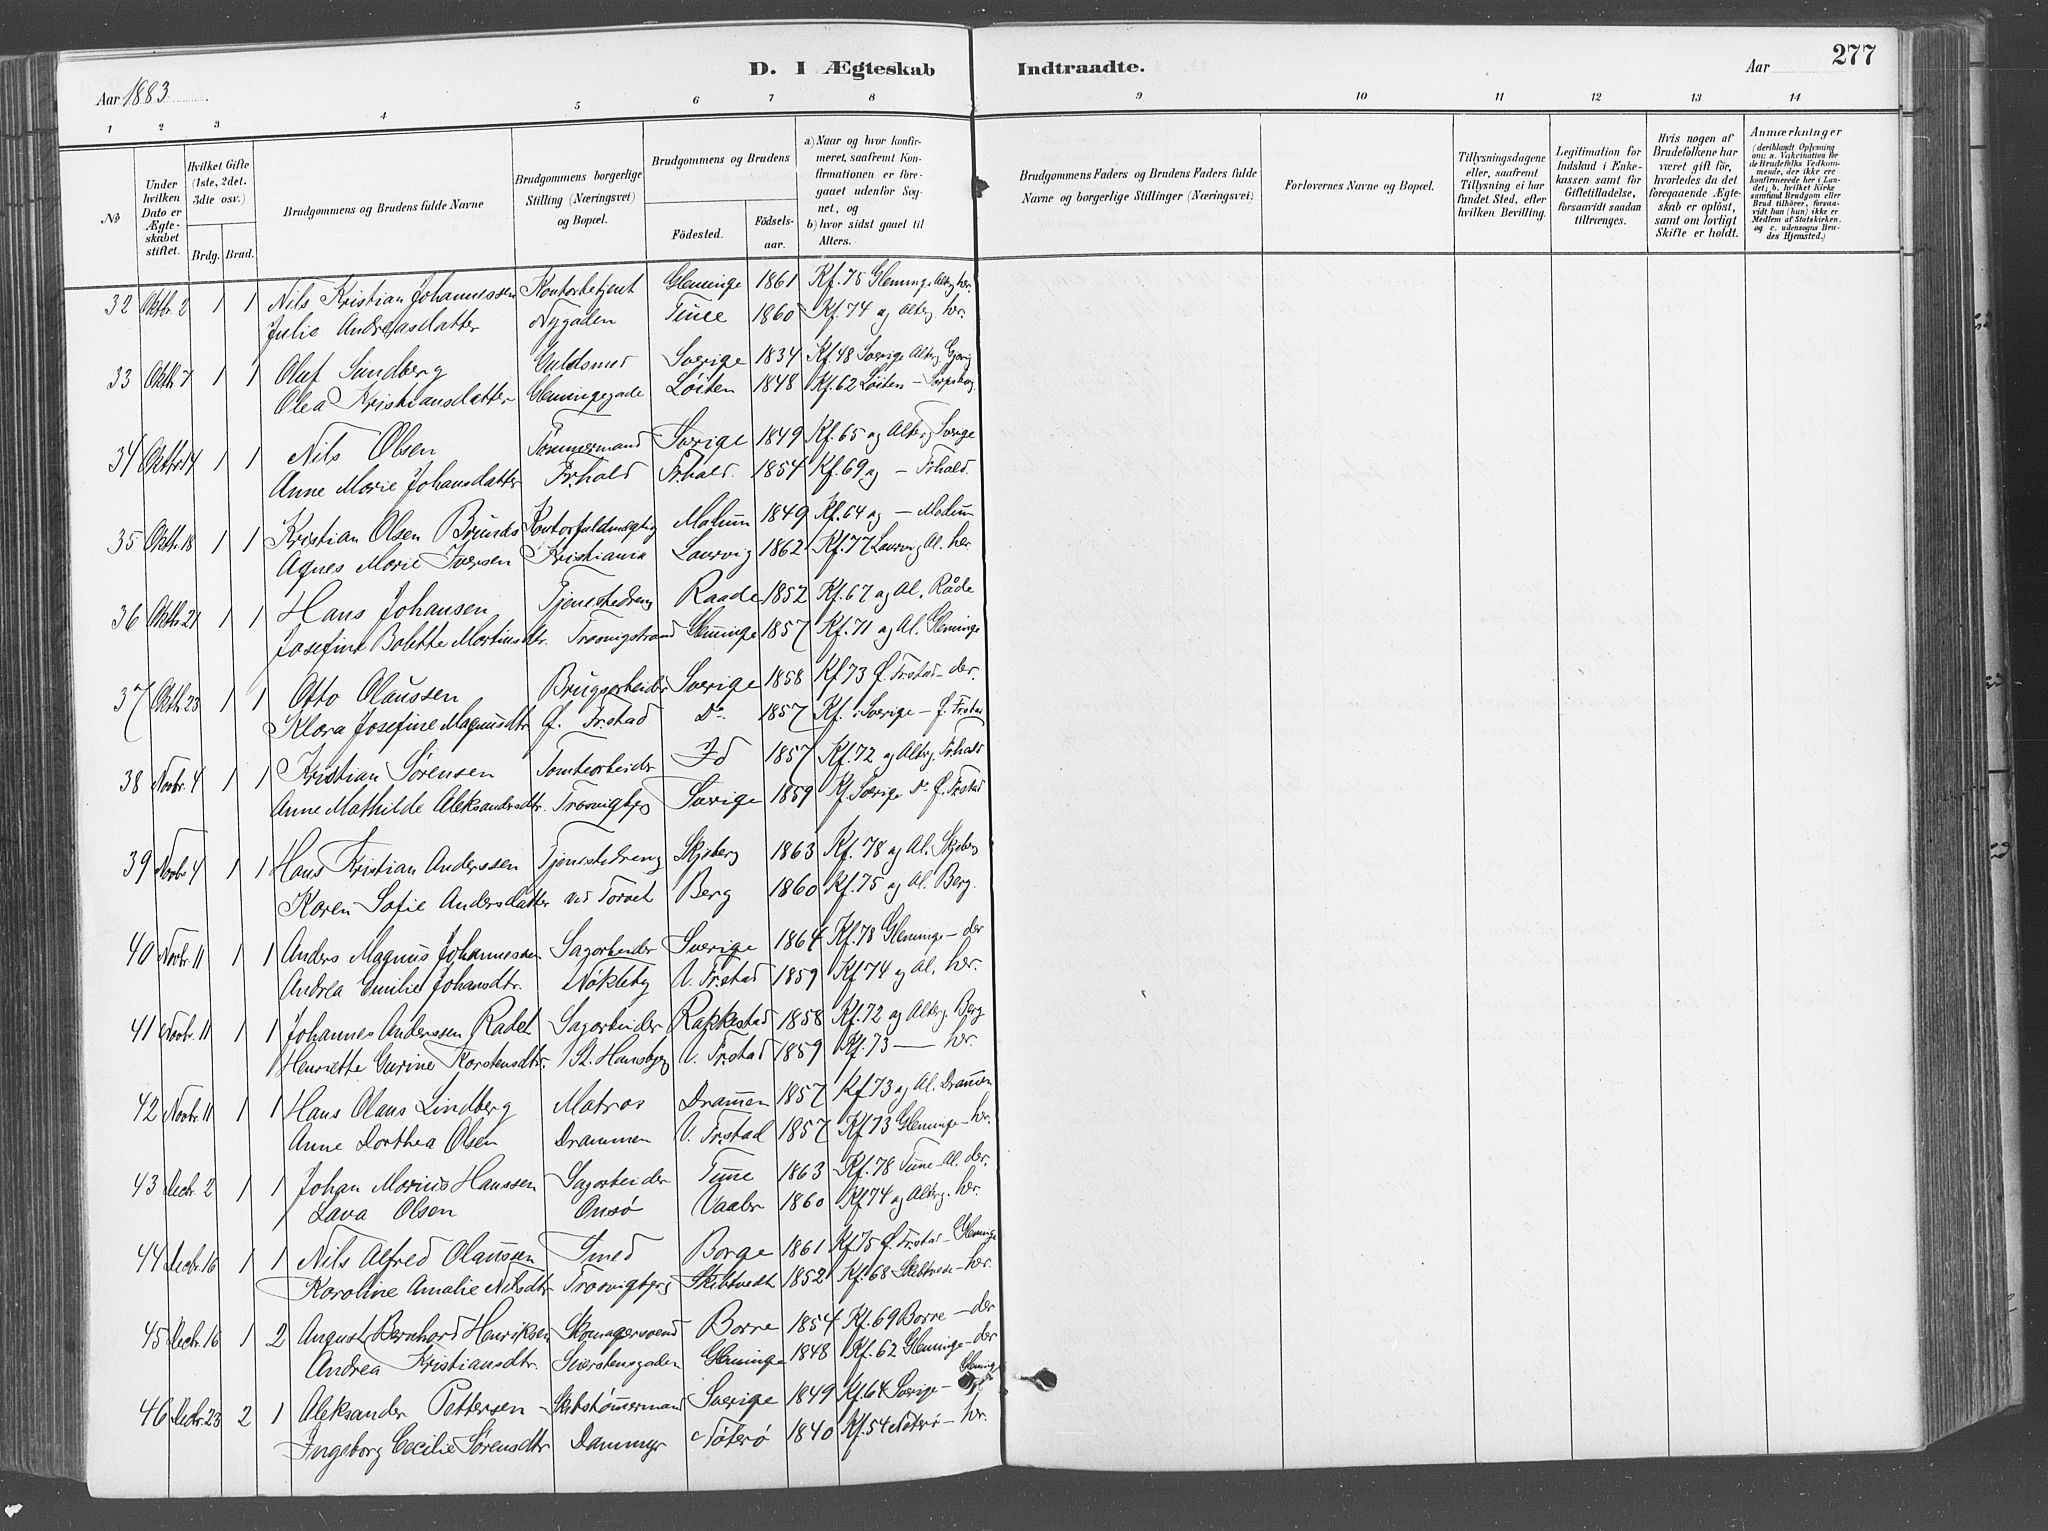 D. I Ægteskab Indtraadte.
277
Aar 1883 Aar
1 2 3 4 5 6 7 8 9 10 11 12 13 14
No
Under hvilken Dato er Ægteskabet stiftet.
Hvilket Gifte (1ste, 2det, 3die osv.)
Brdg. Brud.
Brudgommens og Brudens fulde Navne
Brudgommens borgerlige Stilling (Næringsvei) og Bopæl.
Brudgommens og Brudens
Fødested. Fødselsaar.
a) Naar og hvor konfirmeret, saafremt Konfirmationen er foregaaet udenfor Sognet, og
b) hvor sidst gaaet til Alters.
Brudgommens Faders og Brudens Faders fulde Navne og borgerlige Stillinger (Næringsvei)
Forlovernes Navne og Bopæl.
Tillysningsdagene eller, saafremt Tillysning ei har fundet Sted, efter hvilken Bevilling.
Legitimation for Indskud i Enkekassen samt for Giftetilladelse, forsaavidt saadan tiltrænges.
Hvis nogen af Brudefolkene har været gift før, hvorledes da det foregaaende Ægteskab er opløst, samt om lovligt Skifte er holdt.
Anmærkninger (deriblandt Oplysning om: a. Vakcination for de Brudefolks Vedkommende, der ikke ere konfirmerede her i Landet; b. hvilket Kirkesamfund Brudgom eller Brud tilhører, forsaavidt han (hun) ikke er Medlem af Statskirken, og c. udensogns Brudes Hjemsted.)
32 Oktbr. 2 1 1 Nils Kristian Johannessen Kontorbetjent Glemminge 1861 Kf. 75 Glemminge Alterg. her.
Julie Andreasdatter Nygaden Tune 1860 Kf. 74 og Alterg. her.
33 Oktb. 7 1 1 Oluf Sundberg Guldsmed Sverige 1834 Kf. 48 Sverige Alterg. Gjøvig
Olea Kristiansdatter Glemmingegade Løiten 1848 Kf. 62 Løiten – Sarpsborg
34 Oktbr. 14 1 1 Nils Olsen Tømmermand Sverige 1849 Kf. 65 og Alterg. Sverige
Anne Marie Johansdatter Fr.hald Fr.hald. 1854 Kf. 69 og – Fr.hald.
35 Oktb. 18 1 1 Kristian Olsen Brunæs Kontorfuldmægtig Modum 1849 Kf. 64 og – Modum
Agnes Marie Iversen Kristiania Laurvig 1862 Kf. 77 Laurvig Al. her.
36 Oktb. 21 1 1 Hans Johansen Tjenestedreng Raade 1852 Kf. 67 og Al. Råde
Josefine Bolette Martinsdtr. Trosvigstrand Glemminge 1857 Kf. 71 og Al. Glemminge
37 Oktb. 23 1 1 Otto Olaussen Brugsarbeider Sverige 1858 Kf. 73 Ø. Fr.stad – der.
Klara Josefine Magnusdtr. Ø. Fr.stad Do. 1857 Kf. i Sverige – Ø. Fr.stad
38 Novbr. 4 1 1 Kristian Sørensen Tomtearbeider Id 1857 Kf. 72 og Alterg. Fr.hald
Anne Mathilde Aleksandersdtr. Trosvigbjg Sverige 1859 Kf. Sverige Do Ø. Fr.stad
39 Novbr. 4 1 1 Hans Kristian Anderssen Tjenestedreng Skjeberg 1863 Kf. 78 og Al. Skjeberg
Karen Sofie Andersdatter ved Torvet Berg 1860 Kf. 75 og Al. Berg.
40 Novbr. 11 1 1 Anders Magnus Johannessen Sagarbeider Sverige 1864 Kf. 78 Glemminge – der
Andrea Emilie Johansdtr. Nøkleby V. Fr.stad 1859 Kf. 74 og Al. her.
41 Novbr. 11 1 1 Johannes Anderssen Radet Sagarbeider Rakkestad 1858 Kf. 72 og Alterg. Berg
Henriette Gurine Karstensdtr. St. Hansbjg V. Fr.stad 1859 Kf. 73 — her.
42 Novbr. 11 1 1 Hans Olaus Lindberg Matros Drammen 1857 Kf. 73 og Al. Drammen
Anne Dorthea Olsen Drammen V. Fr.stad 1857 Kf. 73 Glemminge – her.
43 Decbr. 2 1 1 Johan Marius Hanssen Sagarbeider Tune 1863 Kf. 78 Tune – Al. der.
Lava Olsen Onsø Vaaler 1860 Kf. 74 og Alterg. her.
44 Decbr. 16 1 1 Nils Alfred Olaussen Smed Borge 1861 Kf. 75 Ø. Fr.stad – Glemminge
Karoline Amalie Nilsdtr Trosvigbjg Skibtvedt 1852 Kf. 68 Skibtvedt – her.
45 Decbr. 16 1 2 August Bernhard Henriksen Skomagersvend Borre 1854 Kf. 69 Borre – der
Andrea Kristiansdtr. Glemminge 1848 Kf. 62 Glemminge – der
46 Decbr. 23 2 1 Aleksander Pettersen Skibstømmermand Sverige 1849 Kf. 64 Sverige – Glemminge
Ingeborg Cecilie Sørensdtr Dammyr Nøterø 1840 Kf. 54 Nøterø – her.